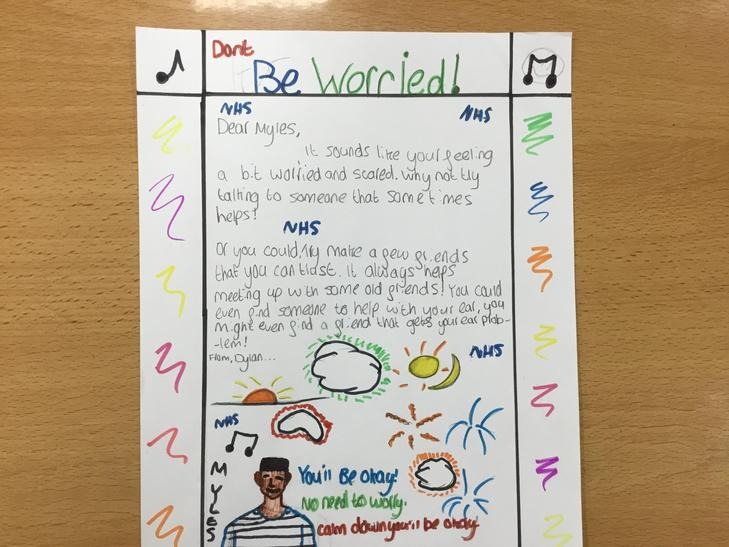 Dont
Be Worried!
NHS
NHS
Dear Myles,
It sounds like your feeling
a bit worried and scared. Why not try
talking to someone that sometimes
helps!
NHS
Or you could try make a few friends
that you can trust. It always helps
meeting up with some old friends! You could
even find someone to help with your ear, you
might even find a friend that gets your ear prob-
-lem!
From, Dylan...
NHS
NHS
MYLES
You'll Be okay!
No need to worry.
calm down you'll be okay.